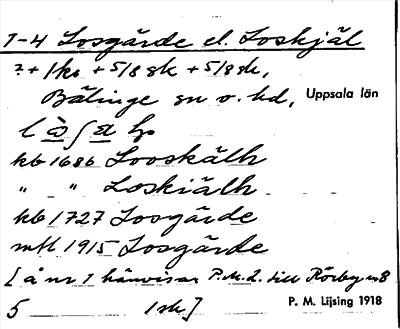 1-4 Losgärde el. Loskjäl
? + 1 kr + 5/8 sk + 5/8 sk,
Bälinge sn o. hd, Uppsala län
kb 1686 Looskälh
" " Loskiälh
kb 1727 Loogärde
mtl 1915 Losgärde
[å nr 1 hänvisar P.M.L. till Rörby n:8
5 1 sk]
P. M. Lijsing 1918